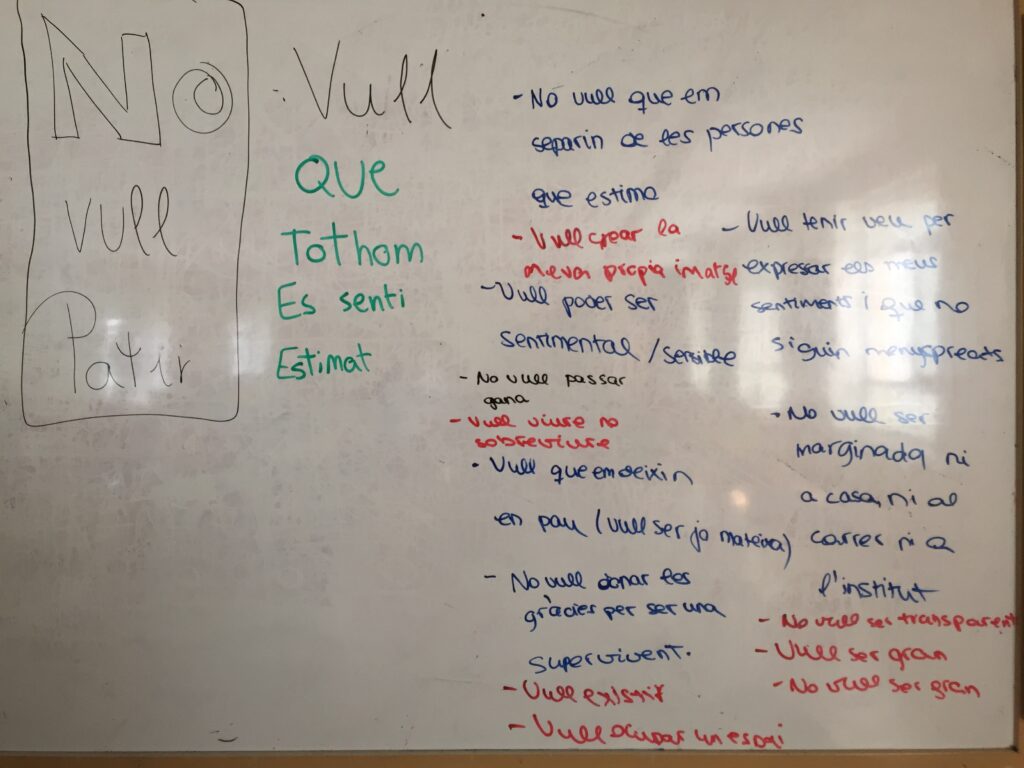 No
vull
Patir
Vull
QUE
Tothom
Es senti
Estimat
- No vull que em
separin de les persones
que estimo
- Vull crear la
meva propia imatge
- Vull poder ser
sentimental / sensible
- No vull passar
gana
- Vull viure no
sobreviure
- Vull que em deixin
en pau (vull ser jo mateixa)
- No vull donar les
gràcies per ser una
supervivent.
- Vull existir
- Vull ocupar un espai
- Vull tenir veu per
expresar els meus
sentiments i que no
siguin menyspreats
- No vull ser
marginada ni
a casa, ni al
carrer ni a
l'institut
- No vull ser transparent
- Vull ser gran
- No vull ser gran